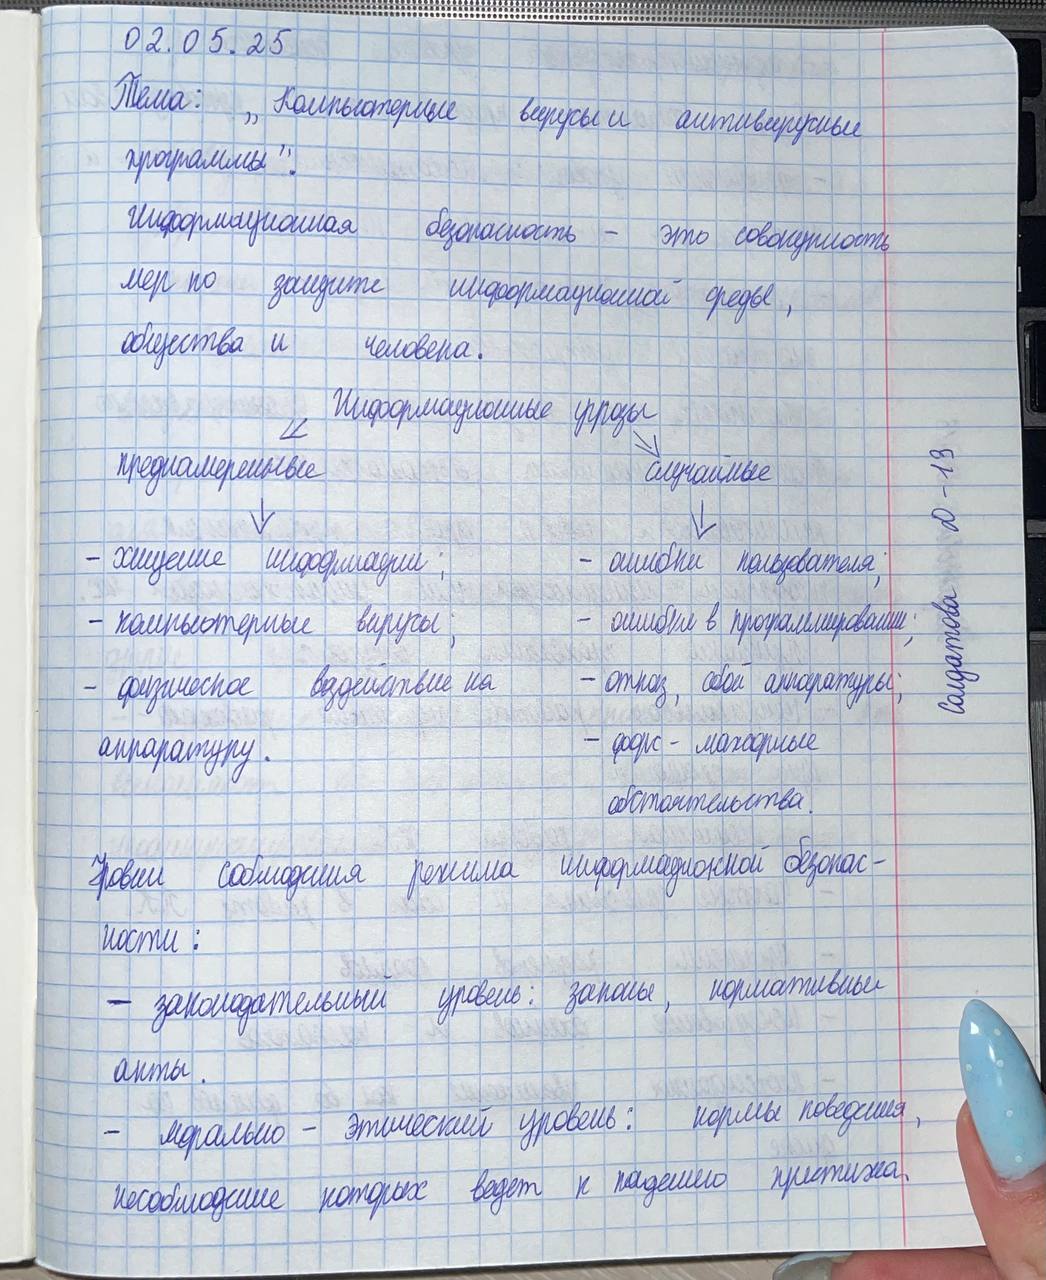 02.05.25
Тема: „Компьютерные вирусы и антивирусные
программы".
Информационная безопасность – это совокупность
мер по защите информационной среды,
общества и человека.
Информационные угрозы
преднамеренные случайные
- хищение информации; - ошибки пользователя;
- компьютерные вирусы; - ошибки в программировании;
- физическое вздействие на - отказ, сбой аппаратуры;
аппаратуру. - форс-мажорные
обстоятельства.
Уровни соблюдения режима информационной безопас-
ности:
- законодательный уровень: законы, нормативные
акты.
- морально-этический уровень: нормы поведения,
несоблюдение которых ведет к падению престижа.
Солдатова Д-13